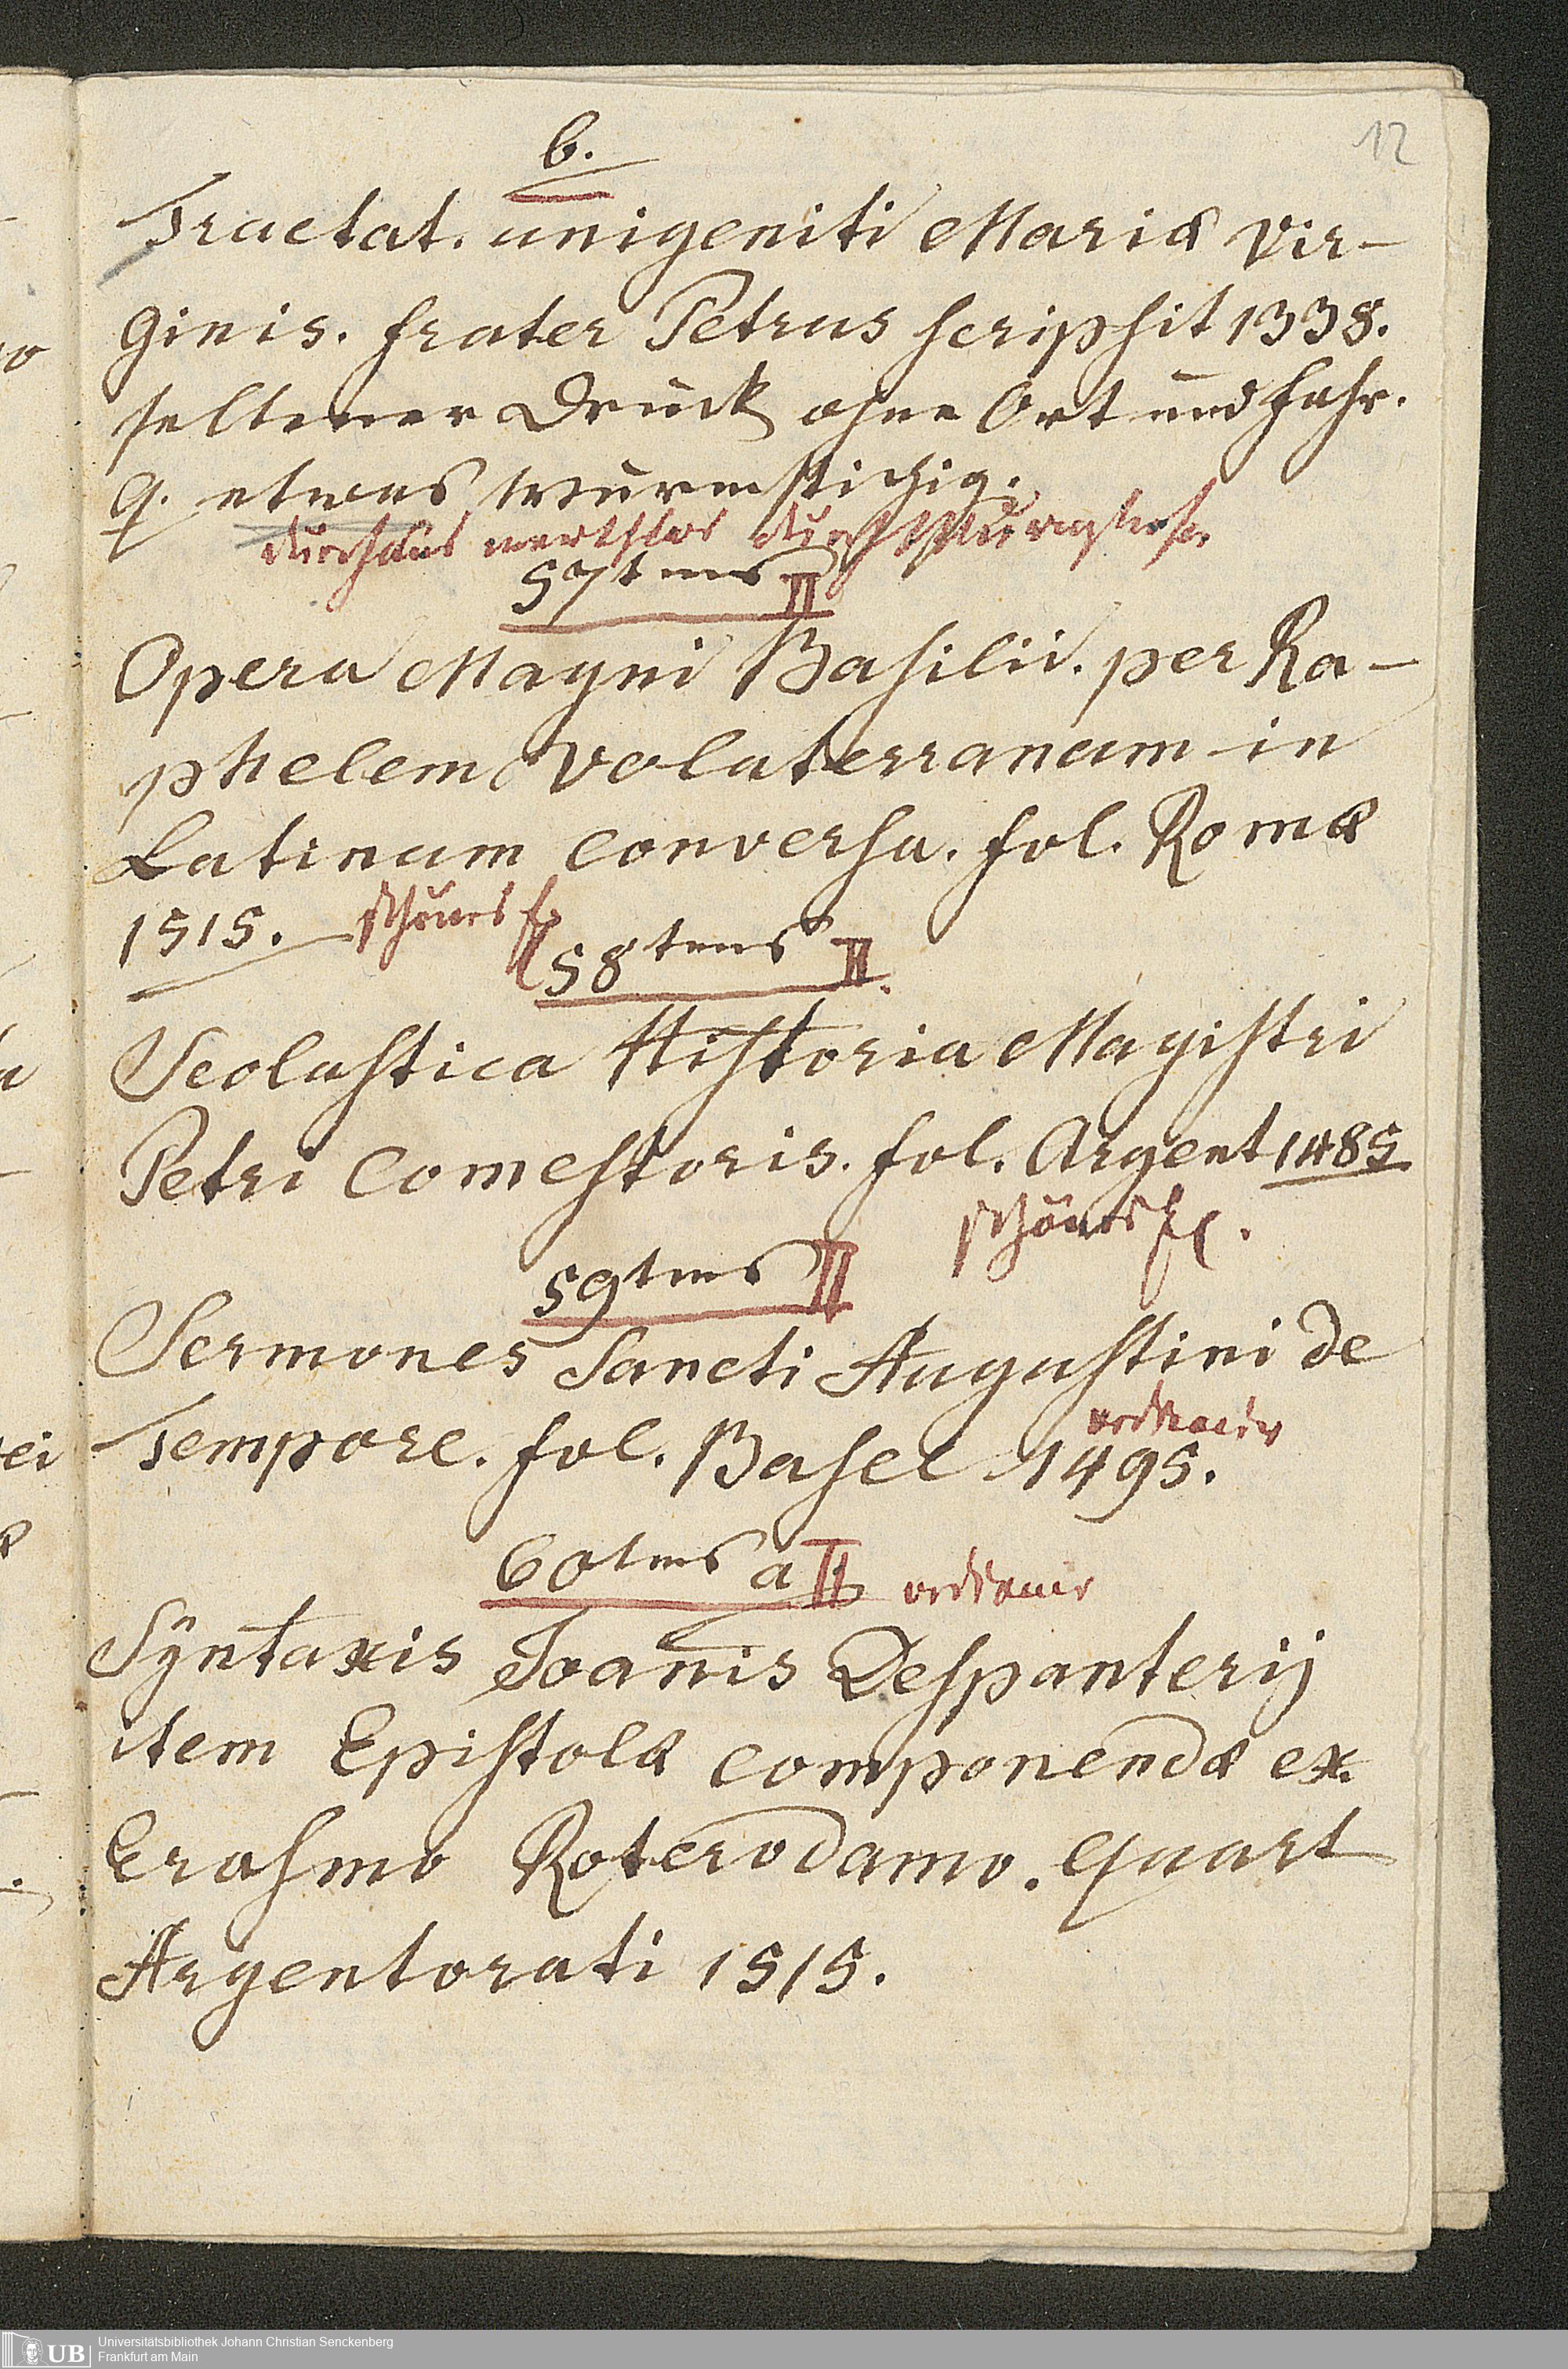 12
b.
Tractat. unigeniti Mariæ Vir-
ginis. frater Petrus scripsit 1338.
seltener Druck ohne Ort und Jahr.
q. etwas wurmstichig.
durchaus werthlos durch Wurmstiche
57tens II
Opera Magni Basilii. per Ra-
phelem Volaterranum in
Latinum conversa. fol. Romæ
1515. schönes Ex
58tens II.
Scolastica Historia Magistri
Petri Comestoris. fol. Argent 1485
schönes Ex.
59tens II
Sermones Sancti Augustini de
Tempore. fol. Basel 1495.
60tens a II
Syntaxis Joañis Despanterij
item Epistolæ componendæ ex.
Erasmo Roterodamo. Quart
Argentorati 1515.
UB Universitätsbibliothek Johann Christian Senckenberg
Frankfurt am Main